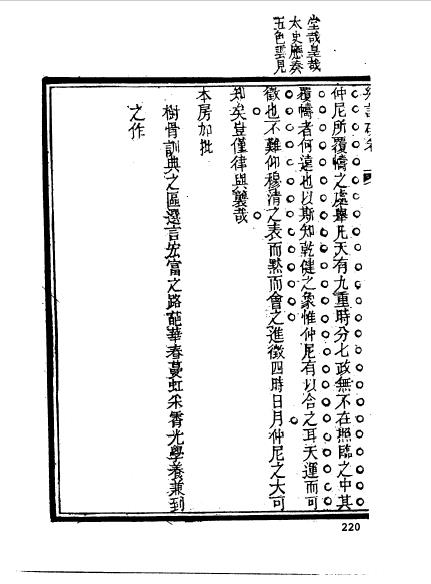 堂哉皇哉
太史應奏
五色雲見
仲尼所覆幬之處舉凡天有九重時分七政無不在照臨之中其
覆幬者何遠也以斯知乾健之象惟仲尼有以合之耳天運而可
徵也不難仰穆清之表而默而會之進徵四時日月仲尼之大可
知矣豈僅律與襲哉
本房加批
樹骨訓典之區選言宏富之路葩華春蔓虹采霄光學養兼到
之作
220